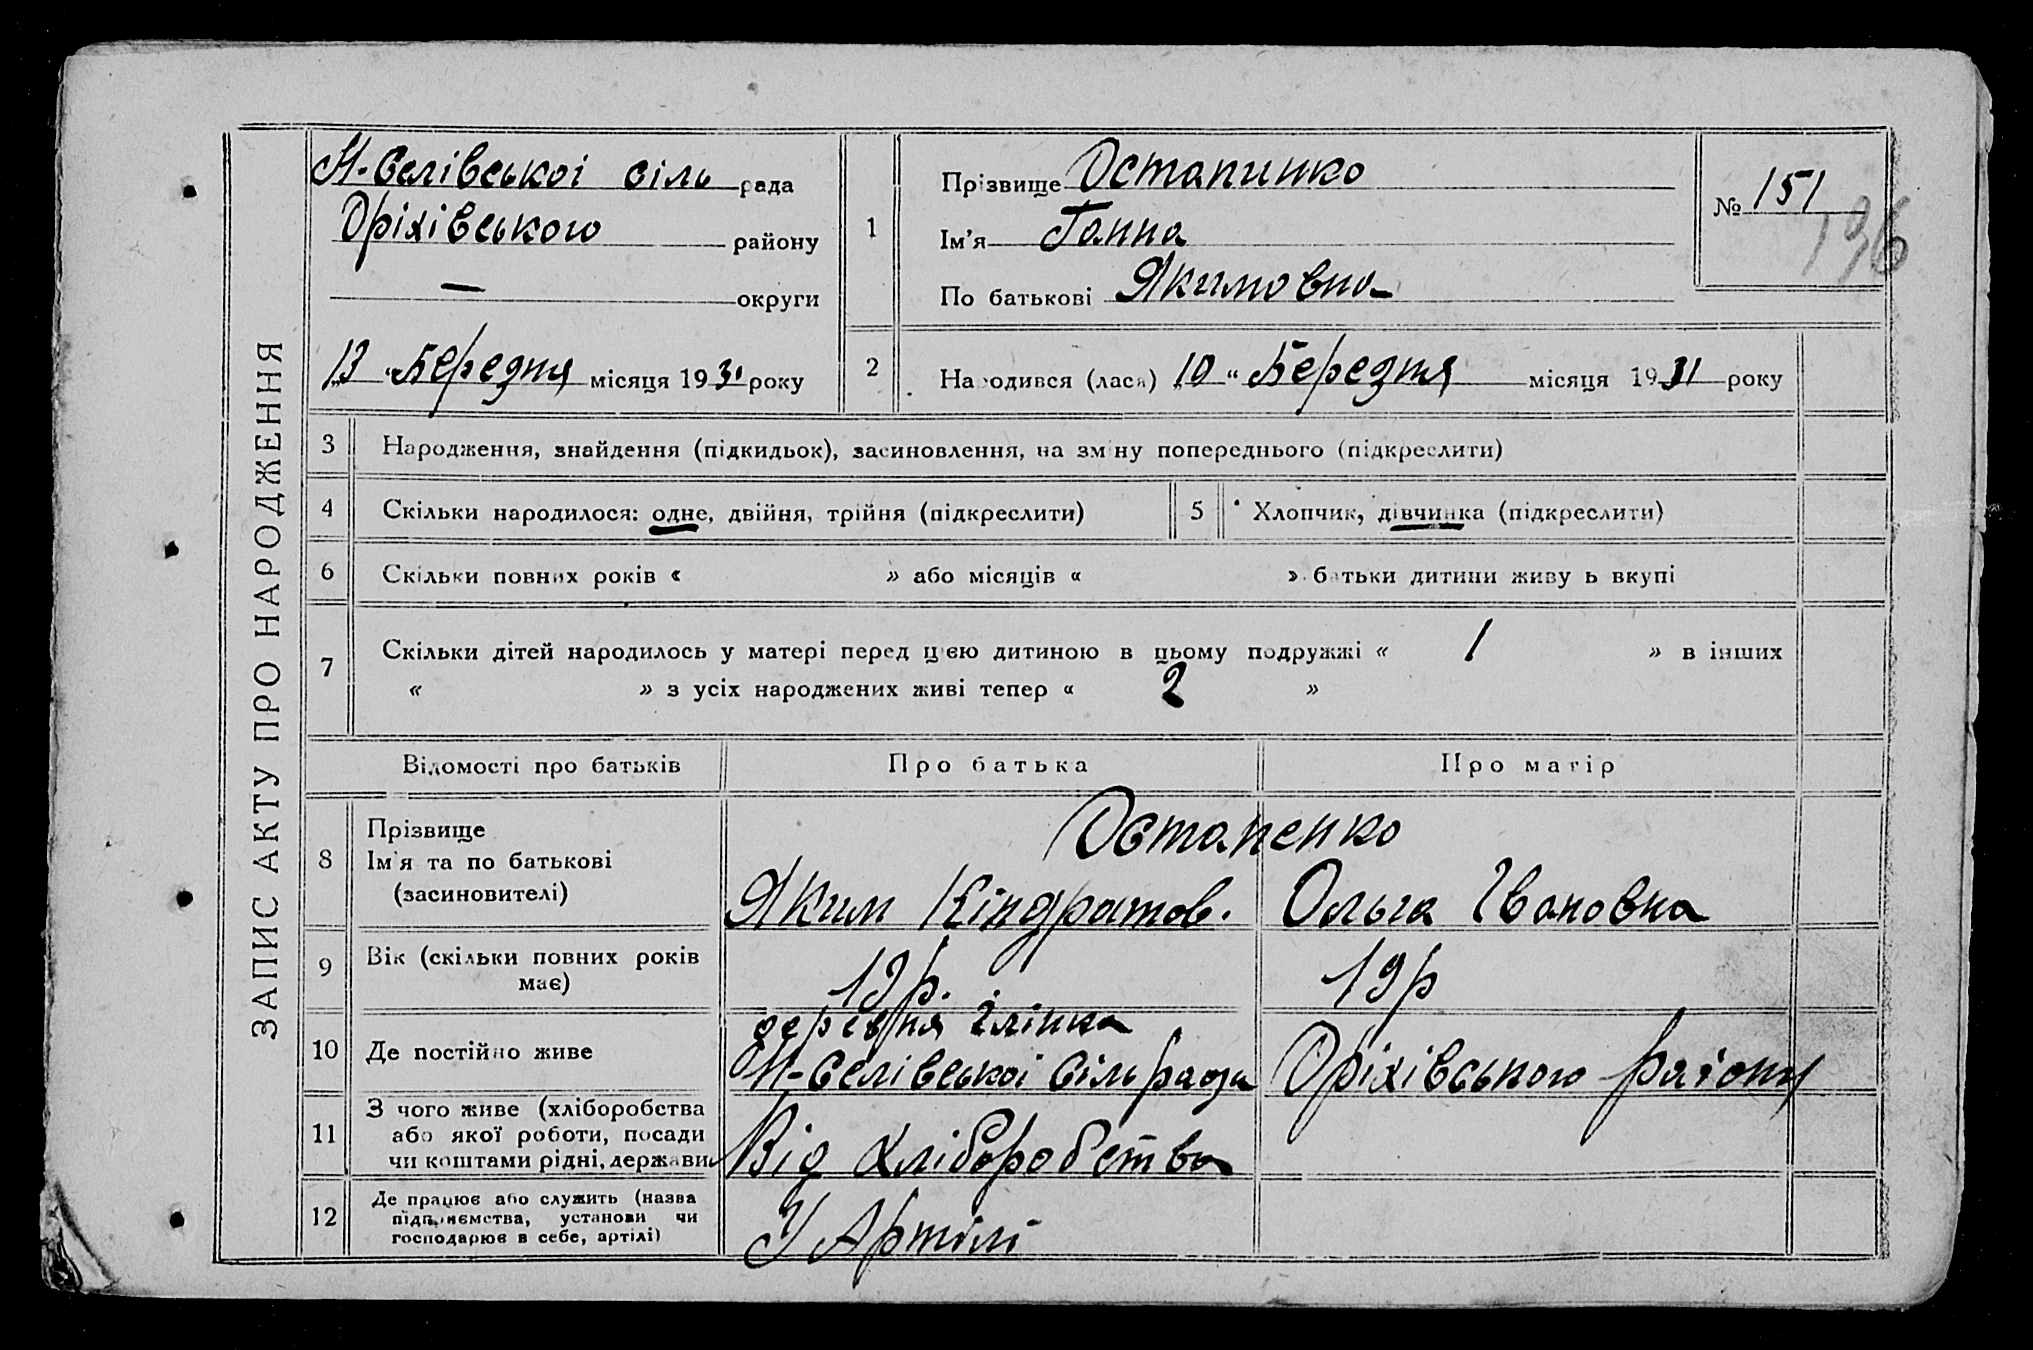 ЗАПИС АКТУ ПРО НАРОДЖЕННЯ
Н-Селівської сіль рада
Оріхівського району
— округи
13 "Березня місяця 1931 року
1
Прізвище Остапинко
Ім'я Ганна
По батькові Якимовна
№ 151
136
2
Народився (лася) 10 " Березня місяця 1931 року
3 Народження, знайдення (підкидьок), засиновлення, на зміну попереднього (підкреслити)
4 Скільки народилося: одне, двійня, трійня (підкреслити)
5 Хлопчик, дівчинка (підкреслити)
6 Скільки повних років « » або місяців « » батьки дитини живуть вкупі
7 Скільки дітей народилось у матері перед цією дитиною в цьому подружжі « 1 » в інших
« » з усіх народжених живі тепер « 2 »
Відомості про батьків Про батька Про матір
8 Прізвище
Ім'я та по батькові
(засиновителі)
Остапенко
Яким Кіндратов. Ольга Івановна
9 Вік (скільки повних років
має)
19р. 19р
10 Де постійно живе
деревня Глінка
Н-Селівської Сільрада Оріхівського району
11 З чого живе (хліборобства
або якої роботи, посади
чи коштами рідні, держави
Від Хліборобства
12 Де працює або служить (назва
підприємства, установи чи
господарює в себе, артілі)
У Артілі